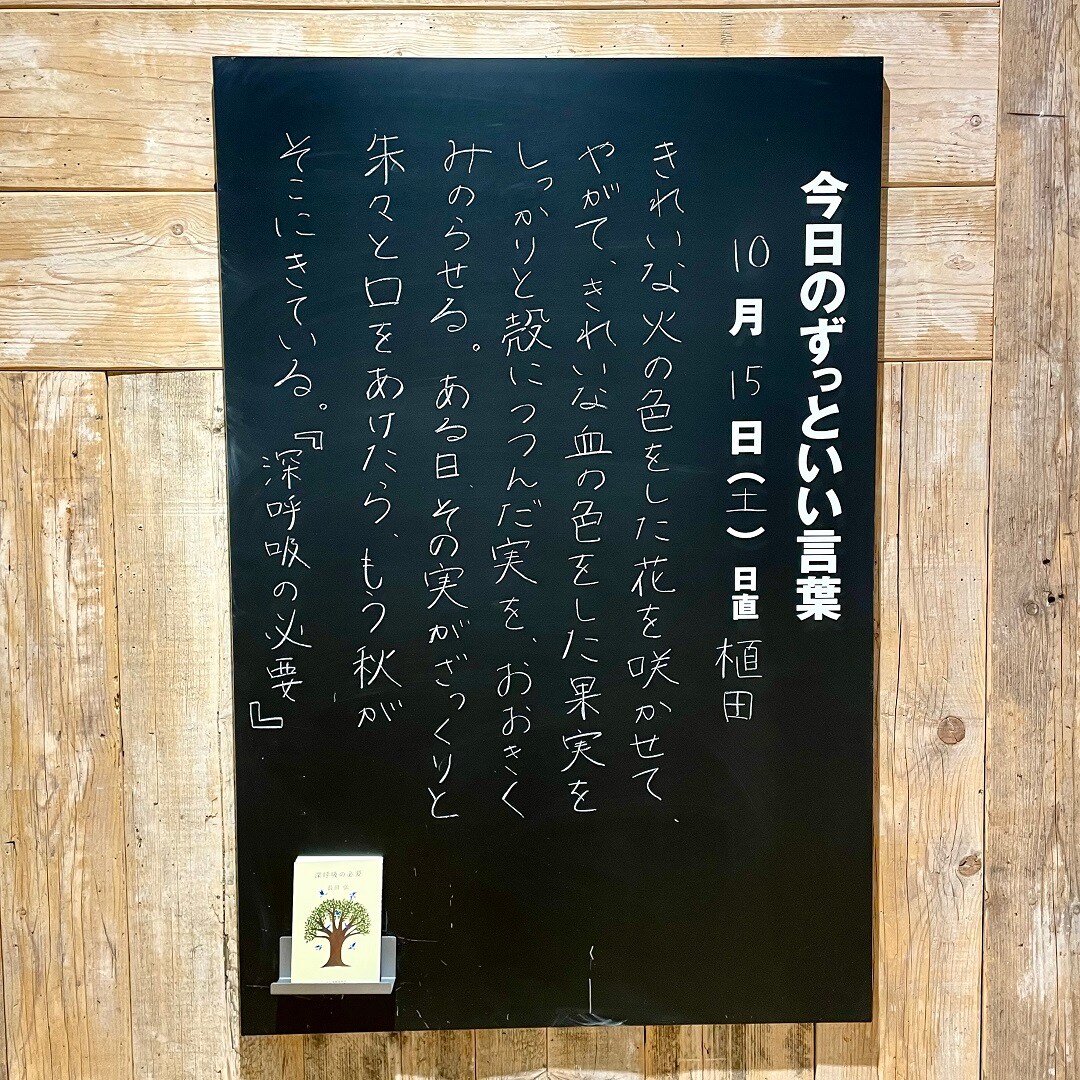 今日のずっといい言葉
10月15日(土) 日直 植田
きれいな火の色をした花を咲かせて、
やがて、きれいな血の色をした果実を
しっかりと殻につつんだ実を、おおきく
みのらせる。ある日、その実がざっくりと
朱々と口をあけたら、もう秋が
そこにきている。『深呼吸の必要』
深呼吸の必要
長田 弘